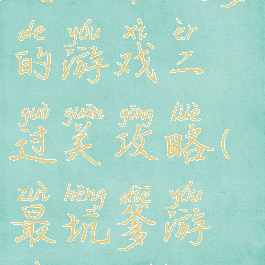 de yóu xì èr
的游戏二
guò guān gōng lüè
过关攻略(
zuì kēng diē yóu
最坑爹游